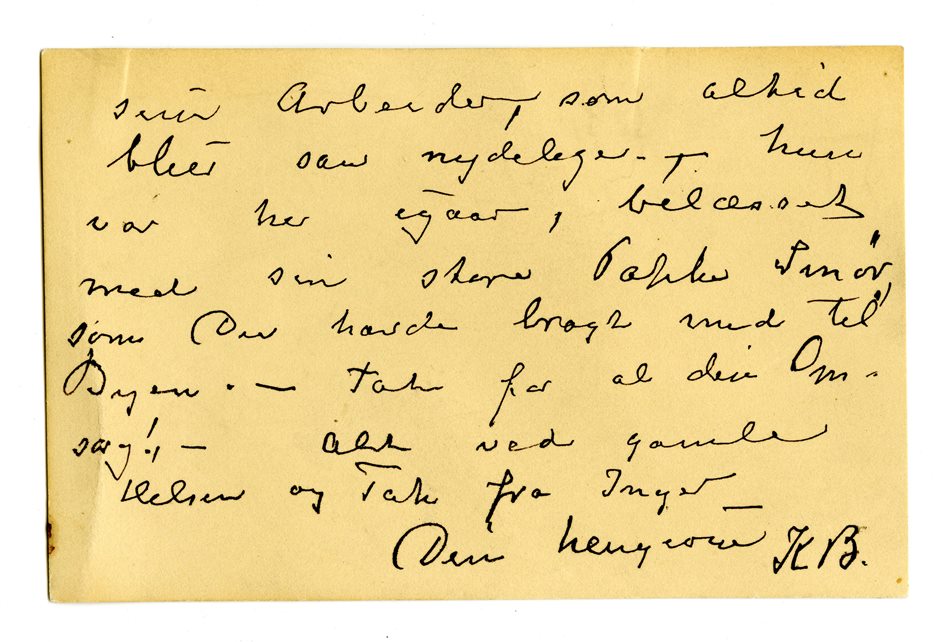 sine Arbeider, som altid
bleir saa nydeleger. – hun
var her igaar, belæsset
med sin store Pakke Smør
som Du havde bragt med til
Byen. – Tak for al din Om-
sorg! – Alt ved gamle
Helsen og Tak fra Inger
Din hengivne KB.